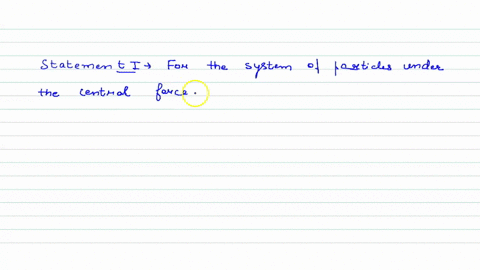 Statement I → For the system of particles under
the central force.